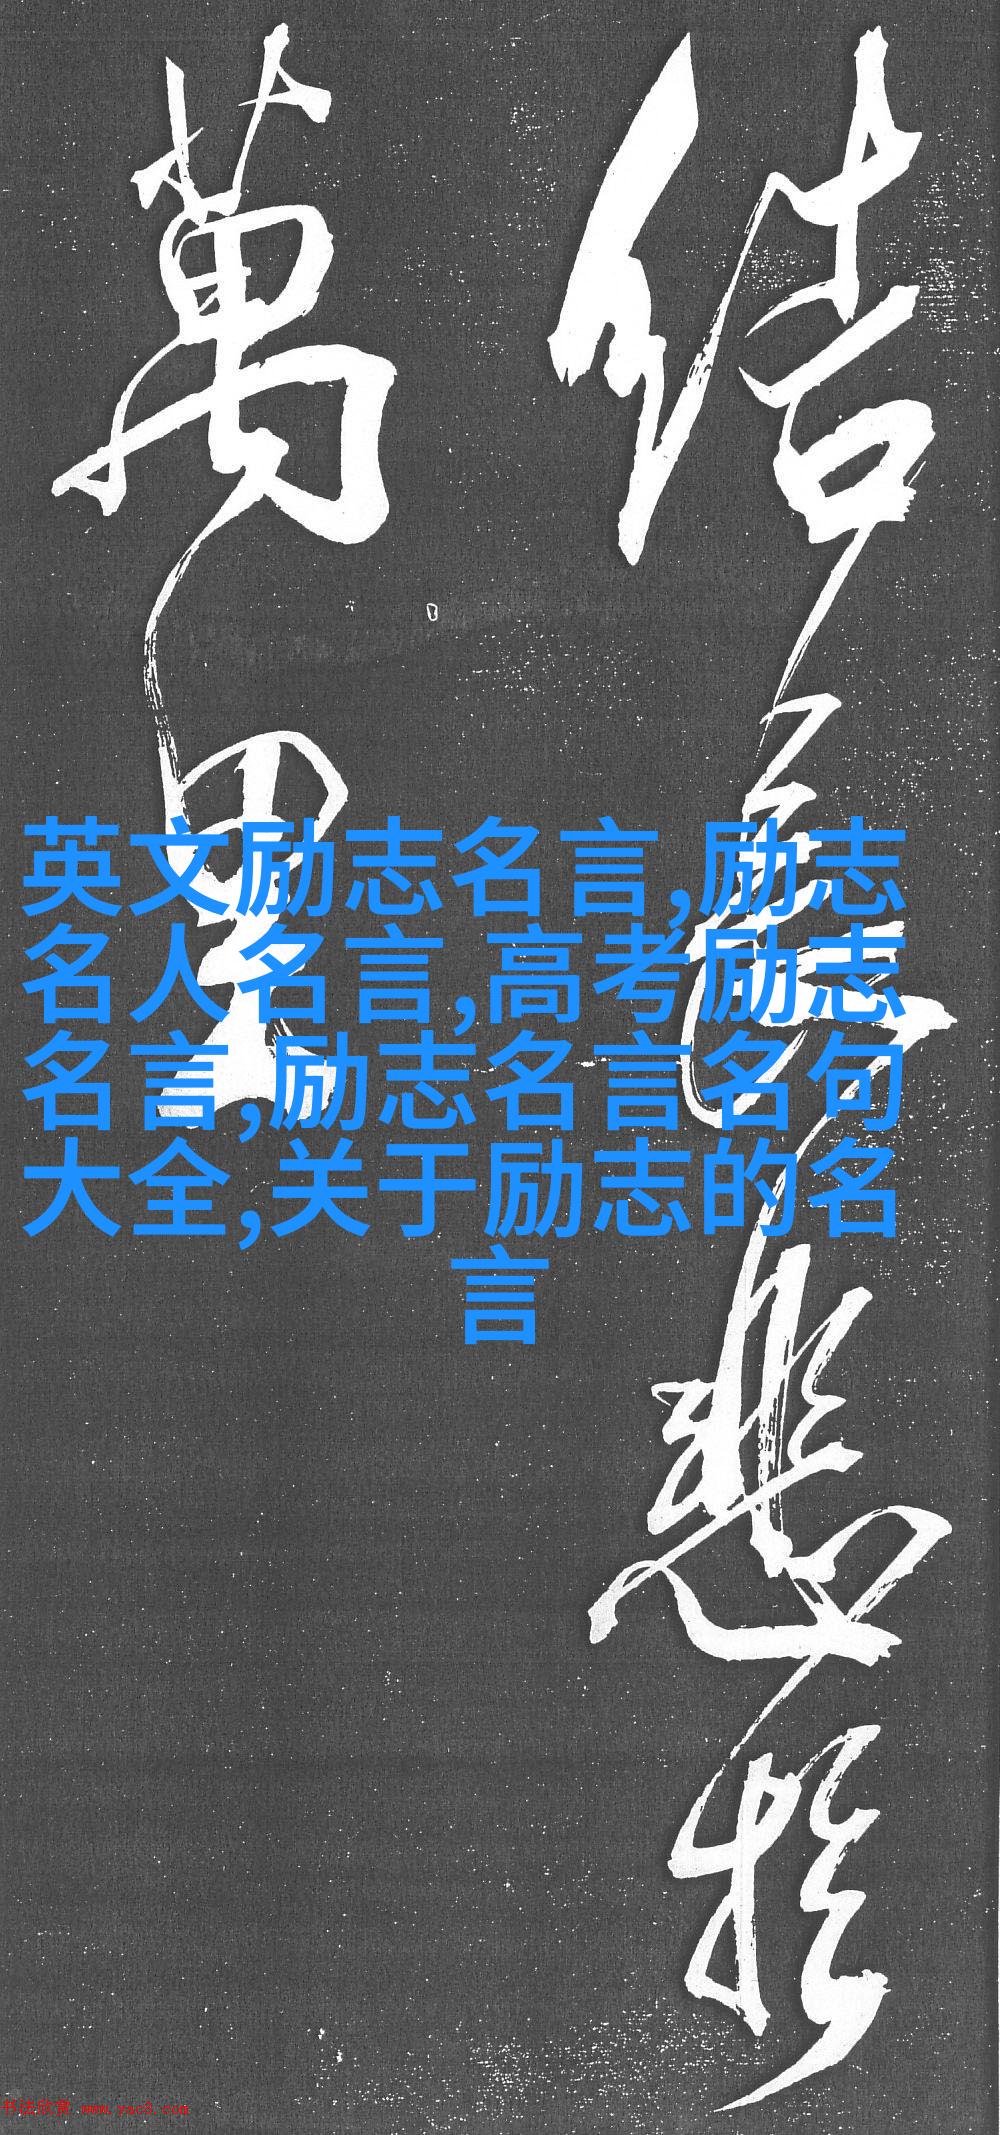 結
悲於
萬里
英文励志名言,励志
名人名言,高考励志
名言,励志名言名句
大全,关于励志的名
言
书法欣赏 www.yac8.com